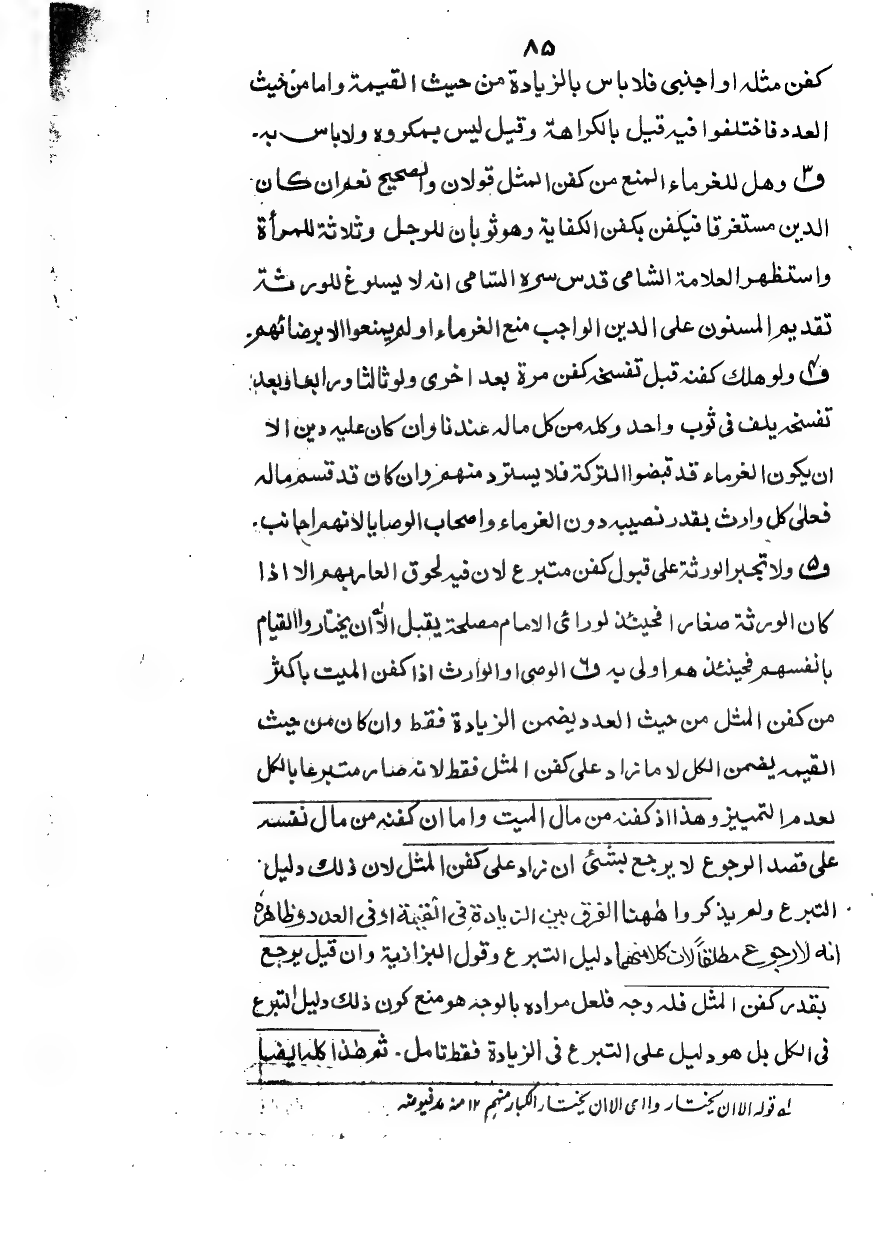 ٨٥
كفن مثله او اجنبى فلا باس بالزيادة من حيث القيمة واما من حيث
العدد فاختلفوا فيه قيل بالكراهة وقيل ليس بمكروه ولا باس به.
ف٣ وهل للغرماء المنع من كفن المثل قولان والصحيح نعم ان كان
الدين مستغرقا فيكفن بكفن الكفاية وهو ثوبان للرجل وثلاثة للمرأة
واستظهر العلامة الشامى قدس سره السامى انه لا يسوغ للورثة
تقديم المسنون على الدين الواجب منع الغرماء او لم يمنعوا الا برضائهم.
ف٤ ولو هلك كفنه قبل تفسخه كفن مرة بعد اخرى ولو ثالثا ورابعا وبعد
تفسخه يلف فى ثوب واحد وكله من كل ماله عندنا وان كان عليه دين الا
ان يكون الغرماء قد قبضوا التركة فلا يسترد منهم وان كان قد قسم ماله
فعلى كل وارث بقدر نصيبه دون الغرماء واصحاب الوصايا لانهم اجانب.
ف٥ ولا تجبر الورثة على قبول كفن متبرع لان فيه لحوق العار بهم الا اذا
كان الورثة صغارا فحينئذ لو راى الامام مصلحة يقبل الا ان يختاروا القيام
بانفسهم فحينئذ هم اولى به ف٦ الوصى او الوارث اذا كفن الميت باكثر
من كفن المثل من حيث العدد يضمن الزيادة فقط وان كان من حيث
القيمه يضمن الكل لا ما زاد على كفن المثل فقط لانه صار متبرعا بالكل
لعدم التمييز وهذا اذ كفنه من مال الميت واما ان كفنه من مال نفسه
على قصد الرجوع لا يرجع بشئ ان زاد على كفن المثل لان ذلك دليل
التبرع ولم يذكروا ههنا الفرق بين الزيادة فى القيمة او فى العدد وظاهره
انه لا رجوع مطلقاً لان كلا منهما دليل التبرع وقول البزازية وان قيل يرجع
بقدر كفن المثل فله وجه فلعل مراده بالوجه هو منع كون ذلك دليل التبرع
فى الكل بل هو دليل على التبرع فى الزيادة فقط تامل. ثم هذا كله ايضا
له قوله الا ان يختاروا اى الا ان يختار الكبار منهم ١٢ منه